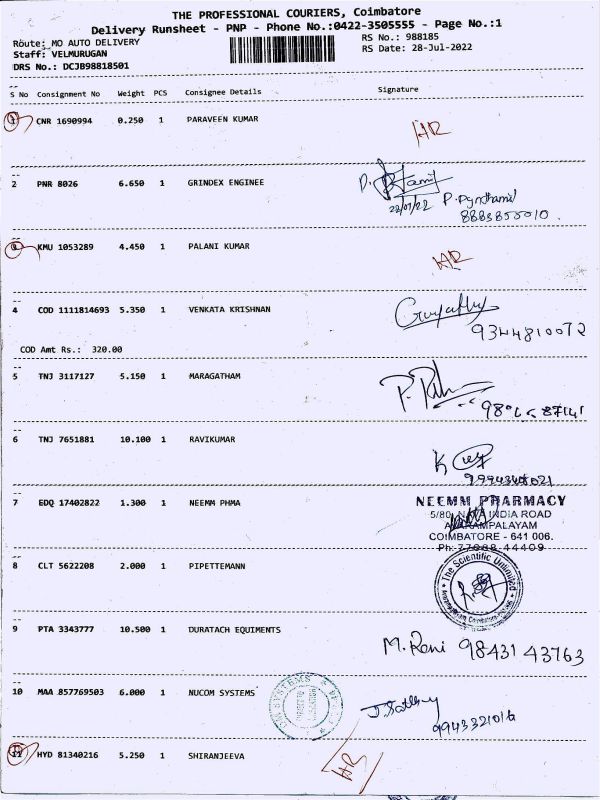 THE PROFESSIONAL COURIERS, Coimbatore
Delivery Runsheet - PNP - Phone No.:0422-3505555 - Page No.:1
Route: MO AUTO DELIVERY
RS No.: 988185
Staff: VELMURUGAN
RS Date: 28-Jul-2022
DRS No.: DCJB98818501
S No Consignment No Weight PCS Consignee Details Signature
1 CNR 1690994 0.250 1 PARAVEEN KUMAR
HR
2 PNR 8026 6.650 1 GRINDEX ENGINEE
28/07/22
3 KMU 1053289 4.450 1 PALANI KUMAR
HR
4 COD 1111814693 5.350 1 VENKATA KRISHNAN
9344810072
COD Amt Rs.: 320.00
5 TNJ 3117127 5.150 1 MARAGATHAM
6 TNJ 7651881 10.100 1 RAVIKUMAR
7 EDQ 17402822 1.300 1 NEEMM PHMA
NEEMM PHARMACY
5/80, INDIA ROAD
COIMBATORE - 641 006.
Ph: 77088 44409
8 CLT 5622208 2.000 1 PIPETTEMANN
The Scientific Unlimited
9 PTA 3343777 10.500 1 DURATACH EQUIMENTS
M. Rani 98431 43763
10 MAA 857769503 6.000 1 NUCOM SYSTEMS
SYSTEMS
9943321016
11 HYD 81340216 5.250 1 SHIRANJEEVA
HR